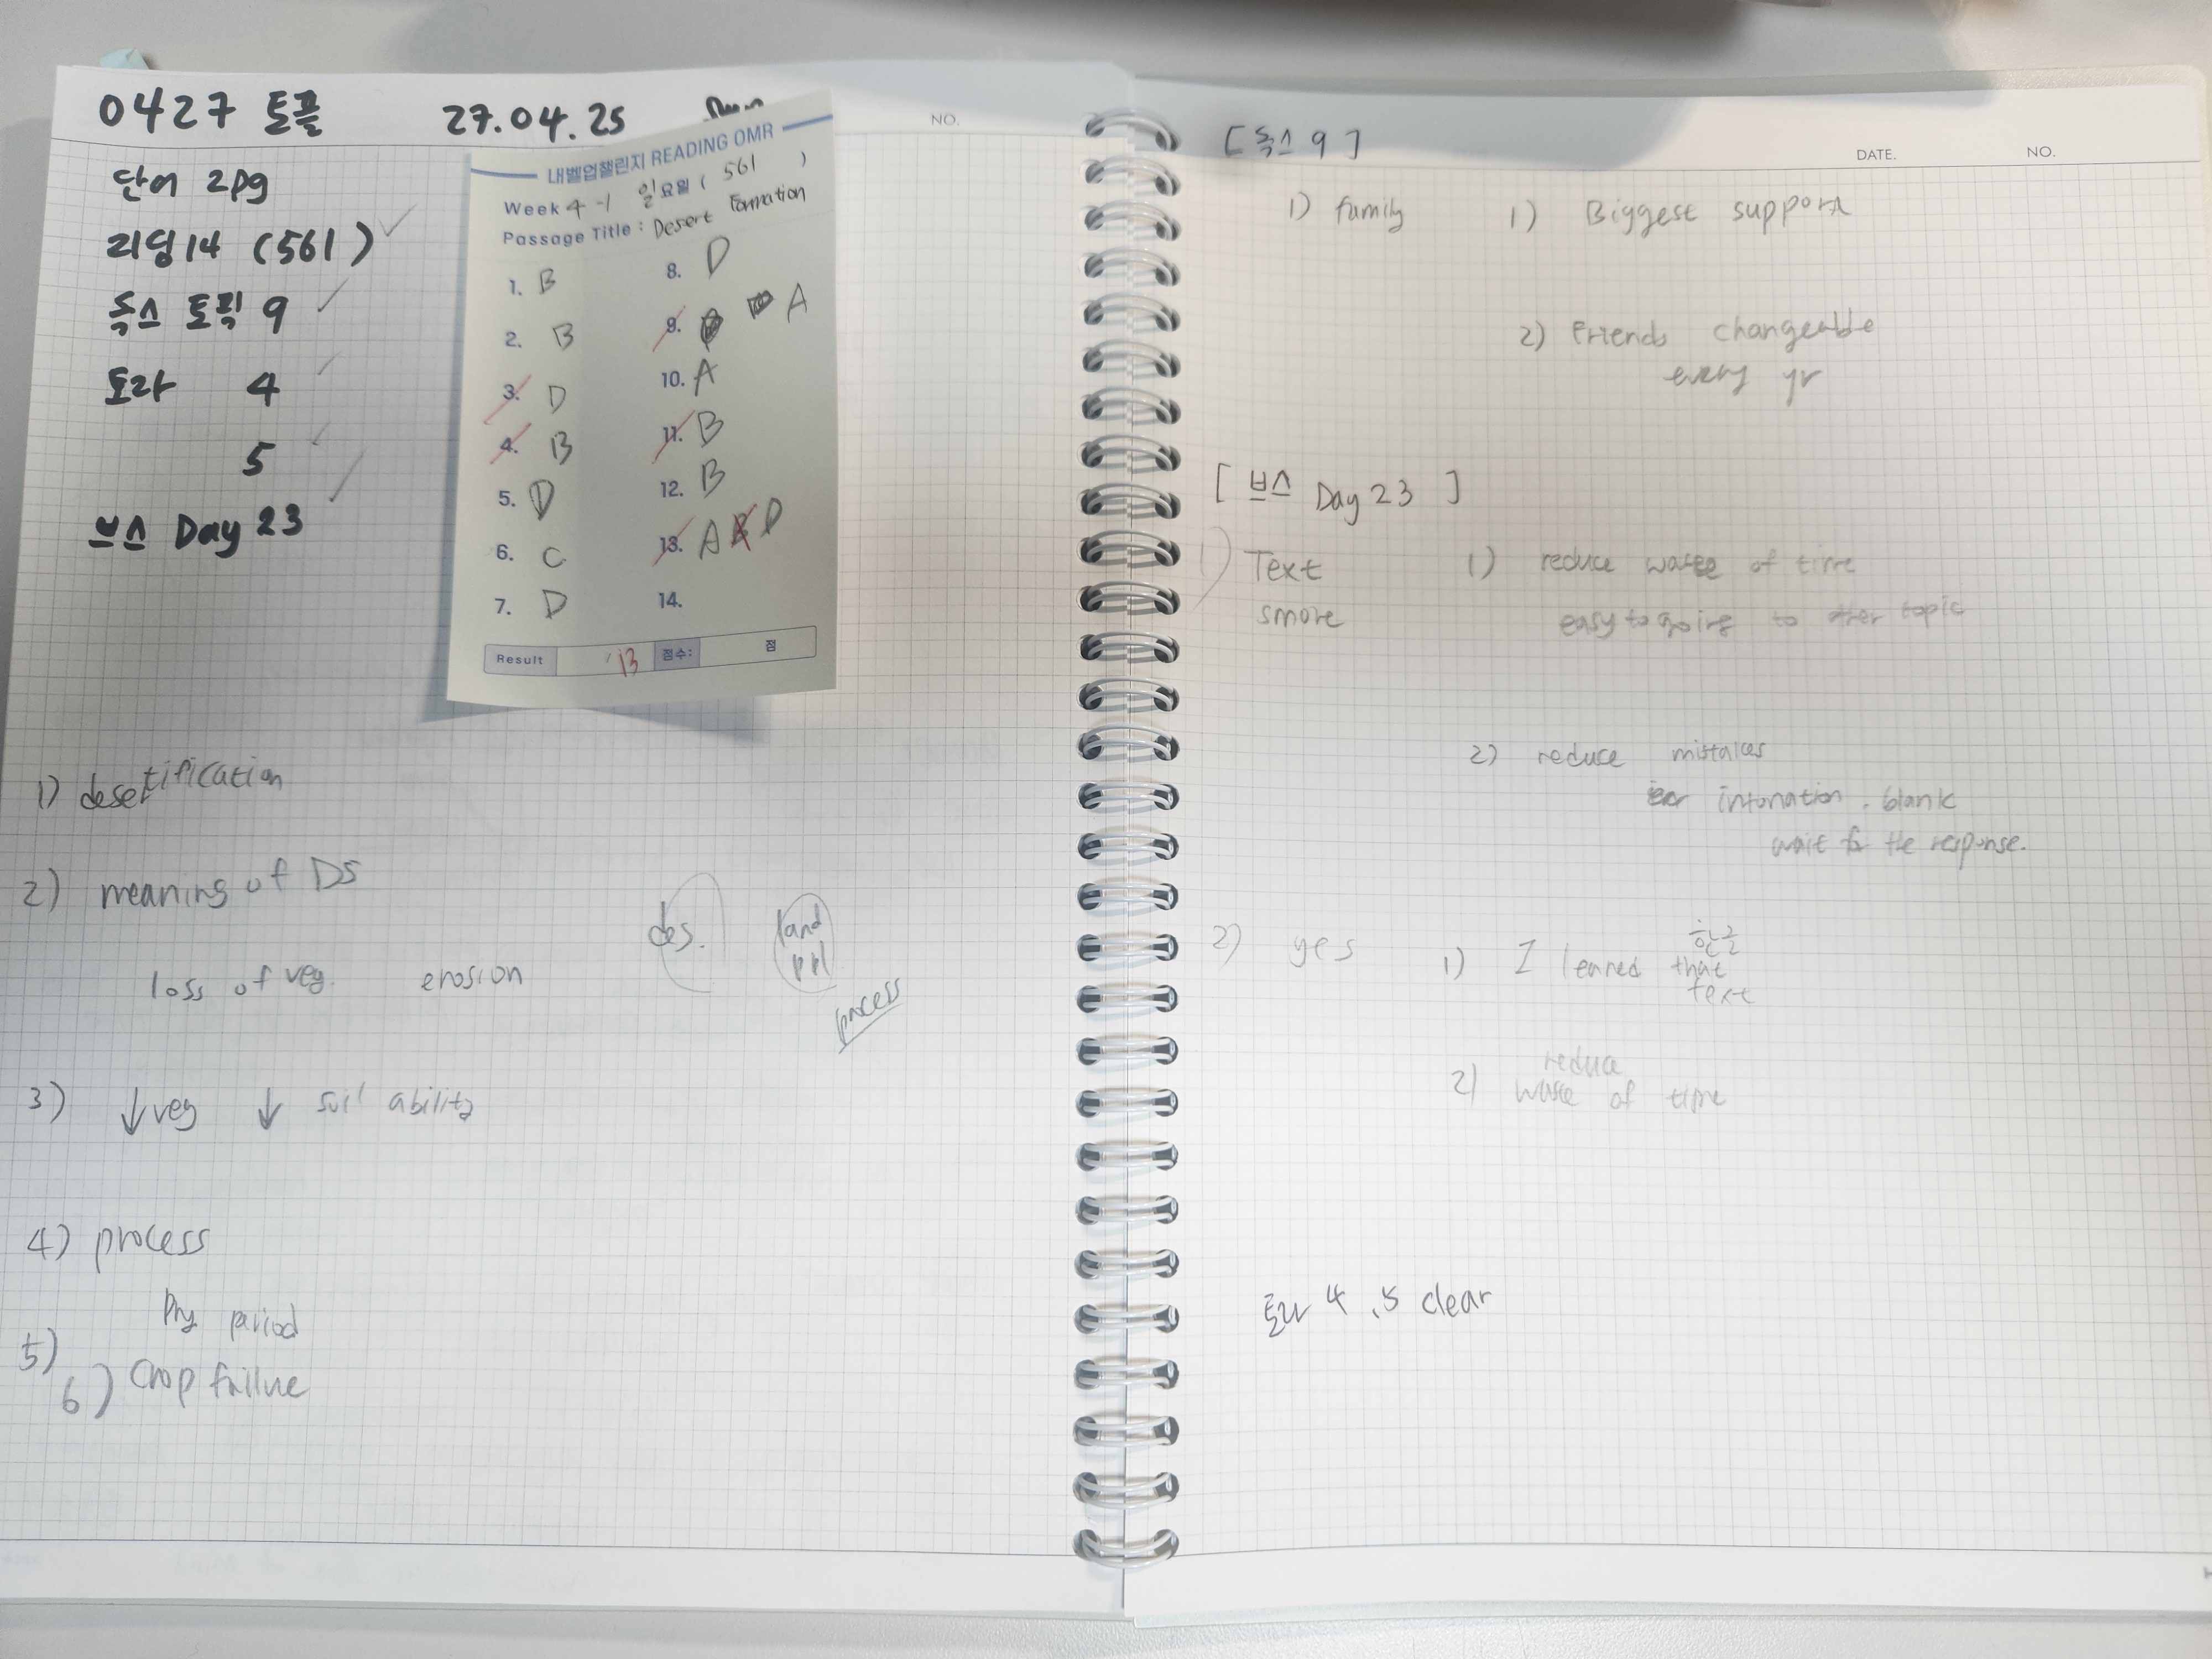 0427 토플 27.04.25
단어 2pg
리딩14 (561)
독스 토픽 9
토라 4
5
브스 Day 23
내벨업챌린지 READING OMR
Week 4-1 일요일 ( 561 )
Passage Title : Desert Formation
1. B
2. B
3. D
4. B
5. D
6. C
7. D
8. D
9. A
10. A
11. B
12. B
13. A D
14.
Result /13 점수: 점
1) desertification
2) meaning of DS
loss of veg. erosion
des. land ppl
process
3) ↓veg ↓ soil ability
4) process
Dry period
5)
6) Crop failure
NO.
[ 독스 9 ]
DATE. NO.
1) family 1) Biggest support
2) Friends changeable
every yr
[ 브스 Day 23 ]
1) Text 1) reduce waste of time
smore easy to going to other topic
2) reduce mistakes
intonation. blank
wait for the response.
2) yes 1) I learned that 한글
text
2) reduce
waste of time
토라 4 .5 clear